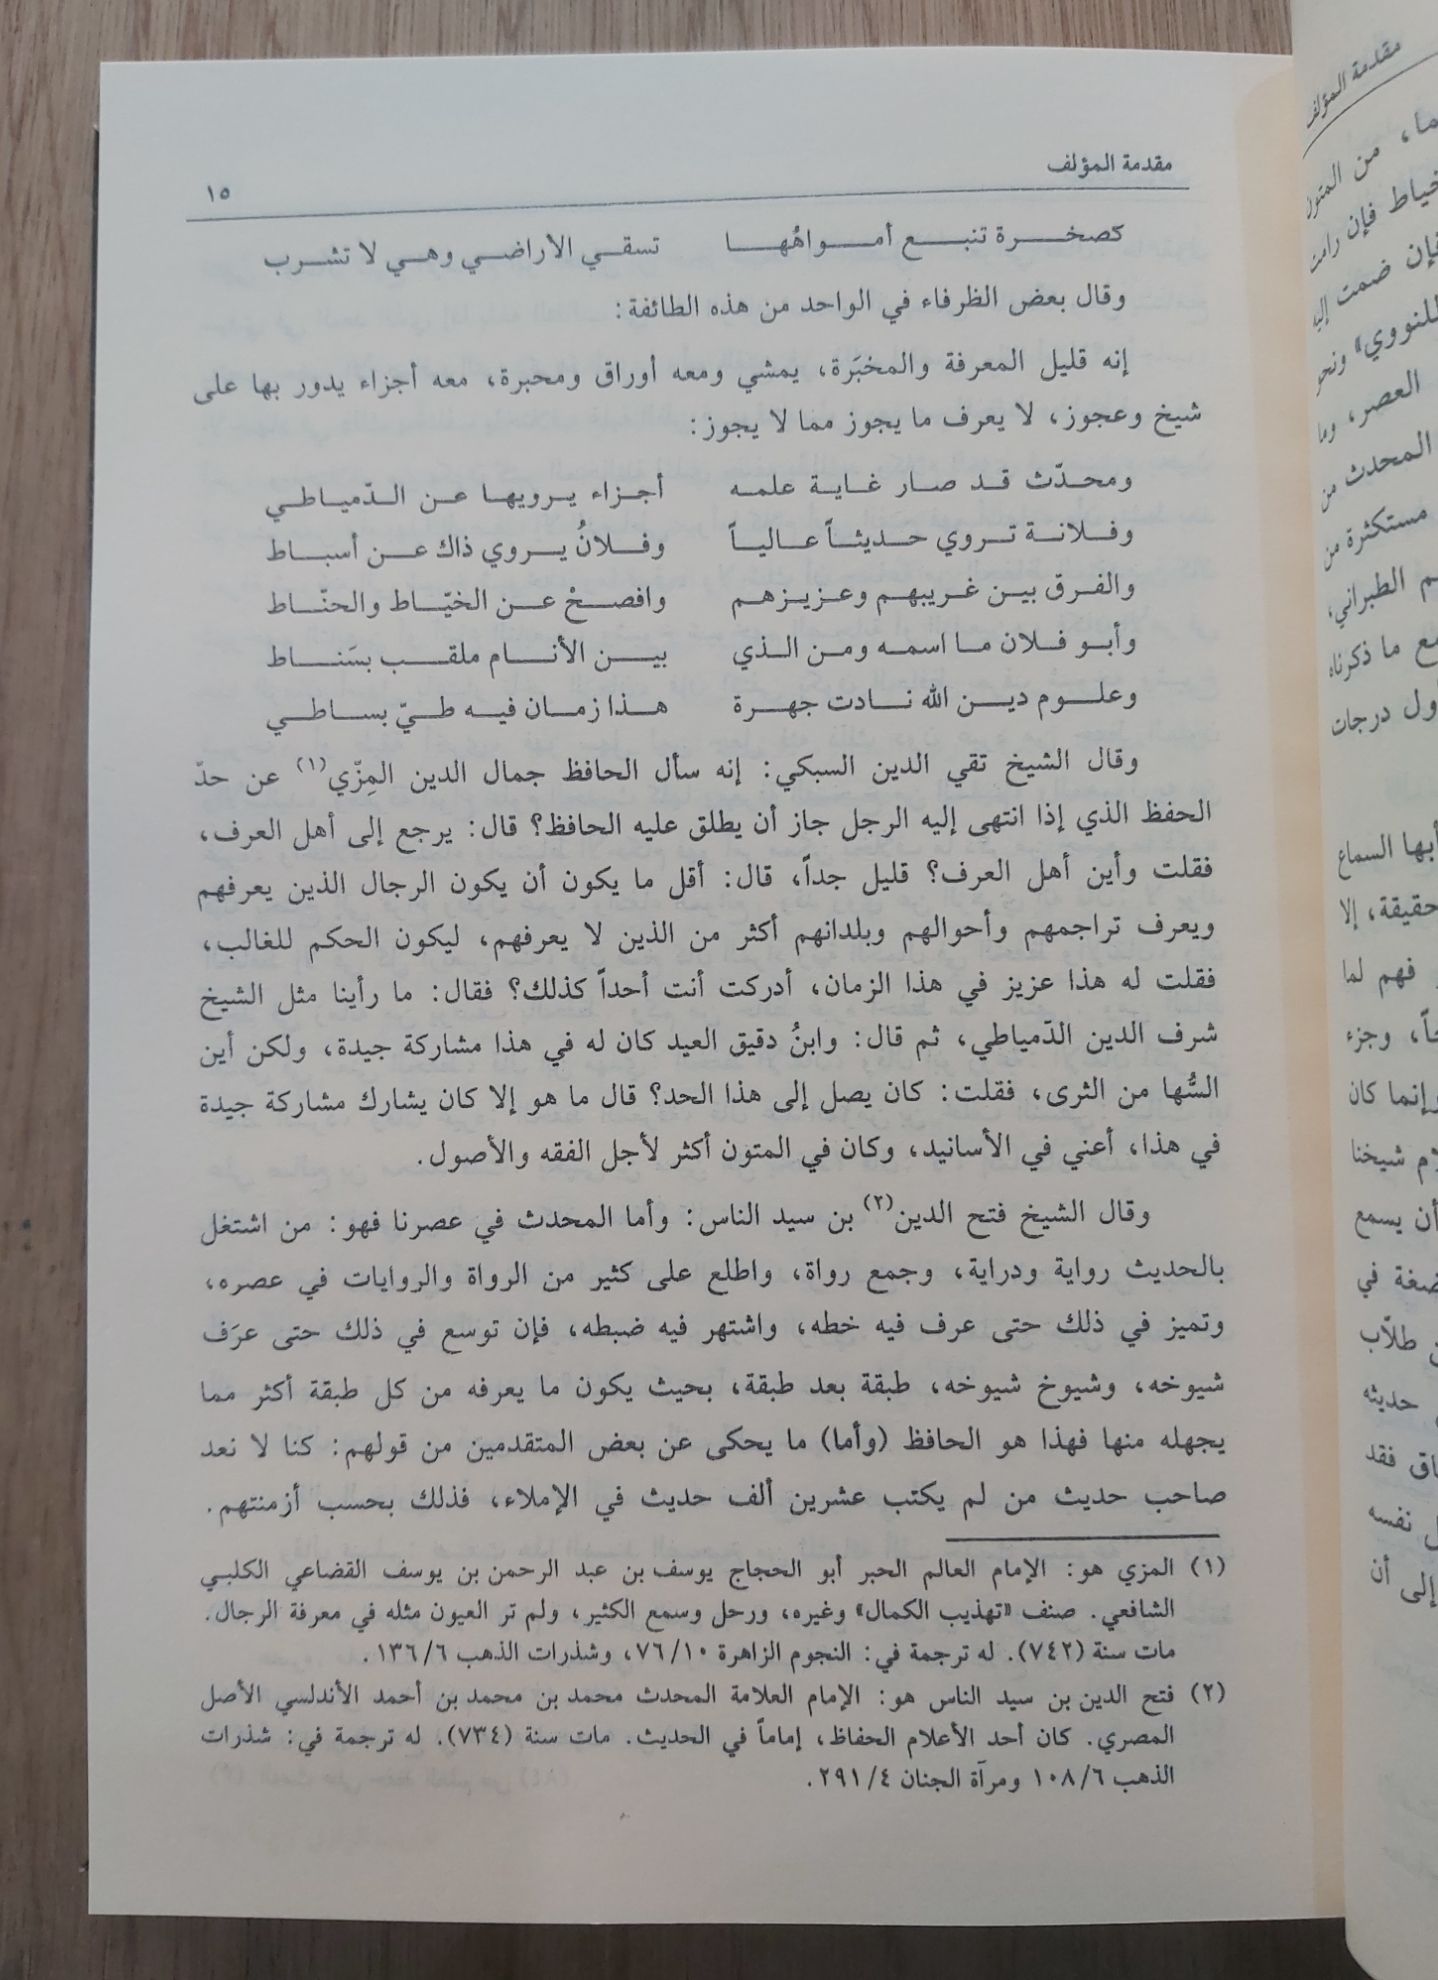 مقدمة المؤلف ١٥
كصخرة تنبع أمواهُها تسقي الاراضي وهي لا تشرب
وقال بعض الظرفاء في الواحد من هذه الطائفة:
إنه قليل المعرفة والمخبَرة، يمشي ومعه أوراق ومحبرة، معه أجزاء يدور بها على
شيخ وعجوز، لا يعرف ما يجوز مما لا يجوز:
ومحدّث قد صار غاية علمه أجزاء يرويها عن الدّمياطي
وفلانة تروي حديثاً عالياً وفلانُ يروي ذاك عن أسباط
والفرق بين غريبهم وعزيزهم وافصحْ عن الخيّاط والحنّاط
وأبو فلان ما اسمه ومن الذي بين الأنام ملقب بسَناط
وعلوم دين الله نادت جهرة هذا زمان فيه طيّ بساطي
وقال الشيخ تقي الدين السبكي: إنه سأل الحافظ جمال الدين المِزّي(١) عن حدّ
الحفظ الذي إذا انتهى إليه الرجل جاز أن يطلق عليه الحافظ؟ قال: يرجع إلى أهل العرف،
فقلت وأين أهل العرف؟ قليل جداً، قال: أقل ما يكون أن يكون الرجال الذين يعرفهم
ويعرف تراجمهم وأحوالهم وبلدانهم أكثر من الذين لا يعرفهم، ليكون الحكم للغالب،
فقلت له هذا عزيز في هذا الزمان، أدركت أنت أحداً كذلك؟ فقال: ما رأينا مثل الشيخ
شرف الدين الدّمياطي، ثم قال: وابنُ دقيق العيد كان له في هذا مشاركة جيدة، ولكن أين
السُّها من الثرى، فقلت: كان يصل إلى هذا الحد؟ قال ما هو إلا كان يشارك مشاركة جيدة
في هذا، أعني في الأسانيد، وكان في المتون أكثر لأجل الفقه والأصول.
وقال الشيخ فتح الدين(٢) بن سيد الناس: وأما المحدث في عصرنا فهو: من اشتغل
بالحديث رواية ودراية، وجمع رواة، واطلع على كثير من الرواة والروايات في عصره،
وتميز في ذلك حتى عرف فيه خطه، واشتهر فيه ضبطه، فإن توسع في ذلك حتى عرَف
شيوخه، وشيوخ شيوخه، طبقة بعد طبقة، بحيث يكون ما يعرفه من كل طبقة أكثر مما
يجهله منها فهذا هو الحافظ (وأما) ما يحكى عن بعض المتقدمين من قولهم: كنا لا نعد
صاحب حديث من لم يكتب عشرين ألف حديث في الإملاء، فذلك بحسب أزمنتهم.
(١) المزي هو: الإمام العالم الحبر أبو الحجاج يوسف بن عبد الرحمن بن يوسف القضاعي الكلبي
الشافعي. صنف «تهذيب الكمال» وغيره، ورحل وسمع الكثير، ولم تر العيون مثله في معرفة الرجال.
مات سنة (٧٤٢). له ترجمة في: النجوم الزاهرة ٧٦/١٠، وشذرات الذهب ١٣٦/٦.
(٢) فتح الدين بن سيد الناس هو: الإمام العلامة المحدث محمد بن محمد بن أحمد الأندلسي الأصل
المصري. كان أحد الأعلام الحفاظ، إماماً في الحديث. مات سنة (٧٣٤). له ترجمة في: شذرات
الذهب ١٠٨/٦ ومرآة الجنان ٢٩١/٤.
مقدمة المؤلف
ما، من المتون
خياط فإن رامت
فإن ضمت إليه
للنووي» ونحو
العصر، وما
المحدث من
مستكثرة من
م الطبراني،
مع ما ذكرناه
أول درجات
أبها السماع
حقيقة، إلا
فهم لما
حاً، وجزء
وإنما كان
لام شيخنا
أن يسمع
ضغة في
طلّاب
حديثه
اق فقد
نفسه
إلى أن